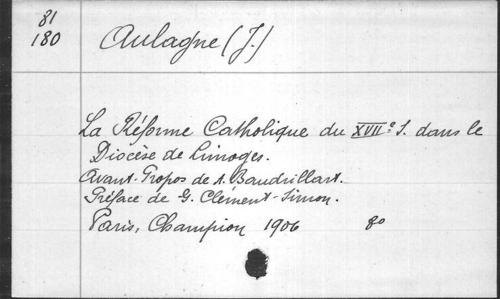 81
180
Aulagne (J.)
La Réforme Catholique du XVIIe S. dans le
Diocèse de Limoges.
Avant-Propos de A. Baudrillart.
Préface de G. Clément-Simon.
Paris, Champion 1906 8o